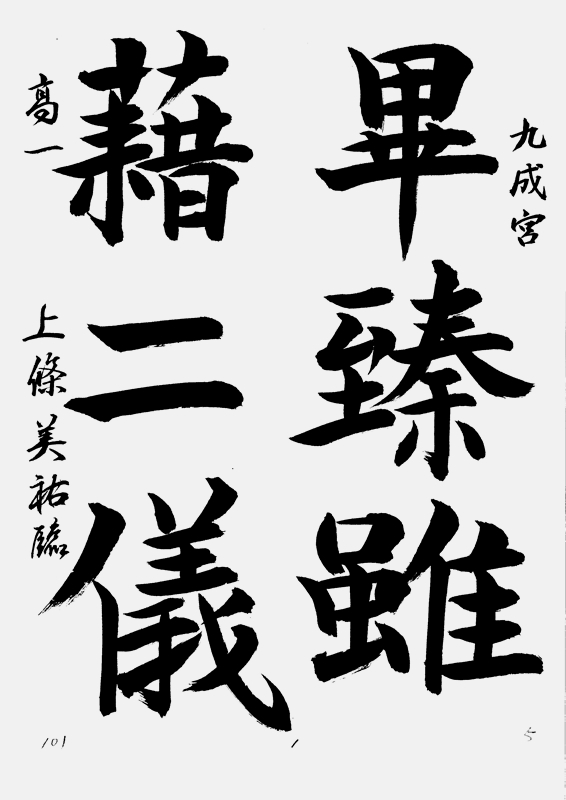 九成宮
畢臻雖
藉二儀
高一 上條美祐臨
101
1
5